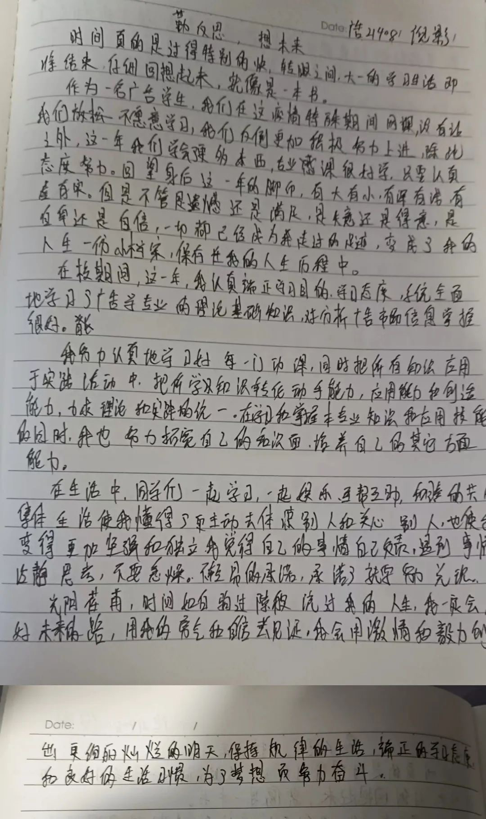 勤反思，想未来
Date: 广告21908 倪影
时间真的是过得特别的快，转眼之间，大一的学习生活即
将结束，仔细回想起来，就像是一本书。
作为一名广告学生，我们在这疫情特殊期间网课，没有让
我们放松一不愿意学习，我们反倒更加积极努力上进，除此
之外，这一年我们学会理的东西，专业感课很好学，只要认真
态度努力。回望身后这一年的脚印，有大有小，有深有浅，有
直有束。但是不管是遗憾还是满足，是失意还是得意，是
自卑还是自信，一切都已经成为我走过的足迹，变成了我的
人生一份小档案，保存在我的人生历程中。
在校期间，这一年，我认真端正学习目的、学习态度，系统全面
地学习了广告学专业的理论基础知识，对分析广告市场信息掌握
很好。
我努力认真地学习好每一门功课，同时把所有知识应用
于实践活动中，把所学及知识转化动手能力，应用能力和创造
能力，力求理论和实践的统一。在学习和掌握本专业知识和应用技能
的同时，我也努力拓宽自己的知识面，培养自己的其它方面
能力。
在生活中，同学们一起学习，一起娱乐，互帮互助，和谐的共
集体生活使我懂得了更主动去体谅别人和关心别人，也使
变得更加坚强和独立，我觉得自己的事情自己负责，遇到事情
冷静思去，不要急燥。不轻易的承诺，承诺了就要努力兑现。
光阴荏苒，时间如白驹过隙般流过我的人生，我一定会
好未来的路，用我的勇气和自信去见证，我会用激情和毅力创
Date: / /
出更绚丽灿烂的明天，保持规律的生活，端正的学习态度
和良好的生活习惯，为了梦想而努力奋斗。